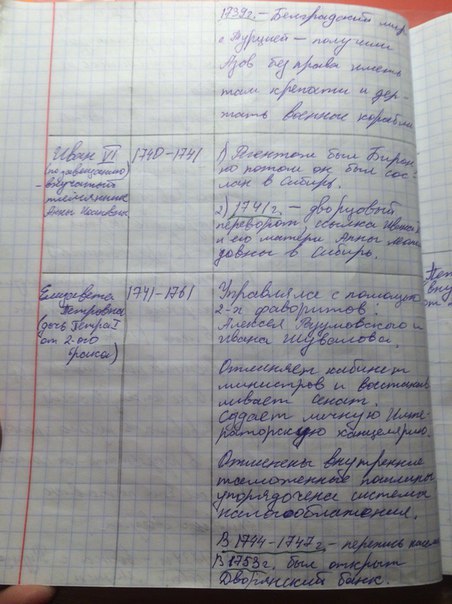 1739г. – Белградский мир
с Турцией – получили
Азов без права иметь
там крепости и дер-
жать военные корабли
Иван VI
(по завещанию)
– внучатый
племянник
Анны Иоановны
1740–1741
1) Регентом был Бирон
но потом он был сос-
лан в Сибирь.
2) 1741г. – дворцовый
переворот ссылка Ивана
и его матери Анны Леопо
довны в Сибирь.
Елизавета
Петровна
(дочь Петра I
от 2-ого
брака)
1741–1761
Управляла с помощью
2-х фаворитов:
Алексея Разумовского и
Ивана Шувалова.
Отменяет кабинет
министров и восстанав
ливает сенат.
Создает личную Импе-
раторскую канцелярию.
Отменены внутренние
таможенные пошлины
упорядочена система
налогообложения.
В 1744–1747г. – перепись насел
В 1753г. был открыт
Дворянский банк